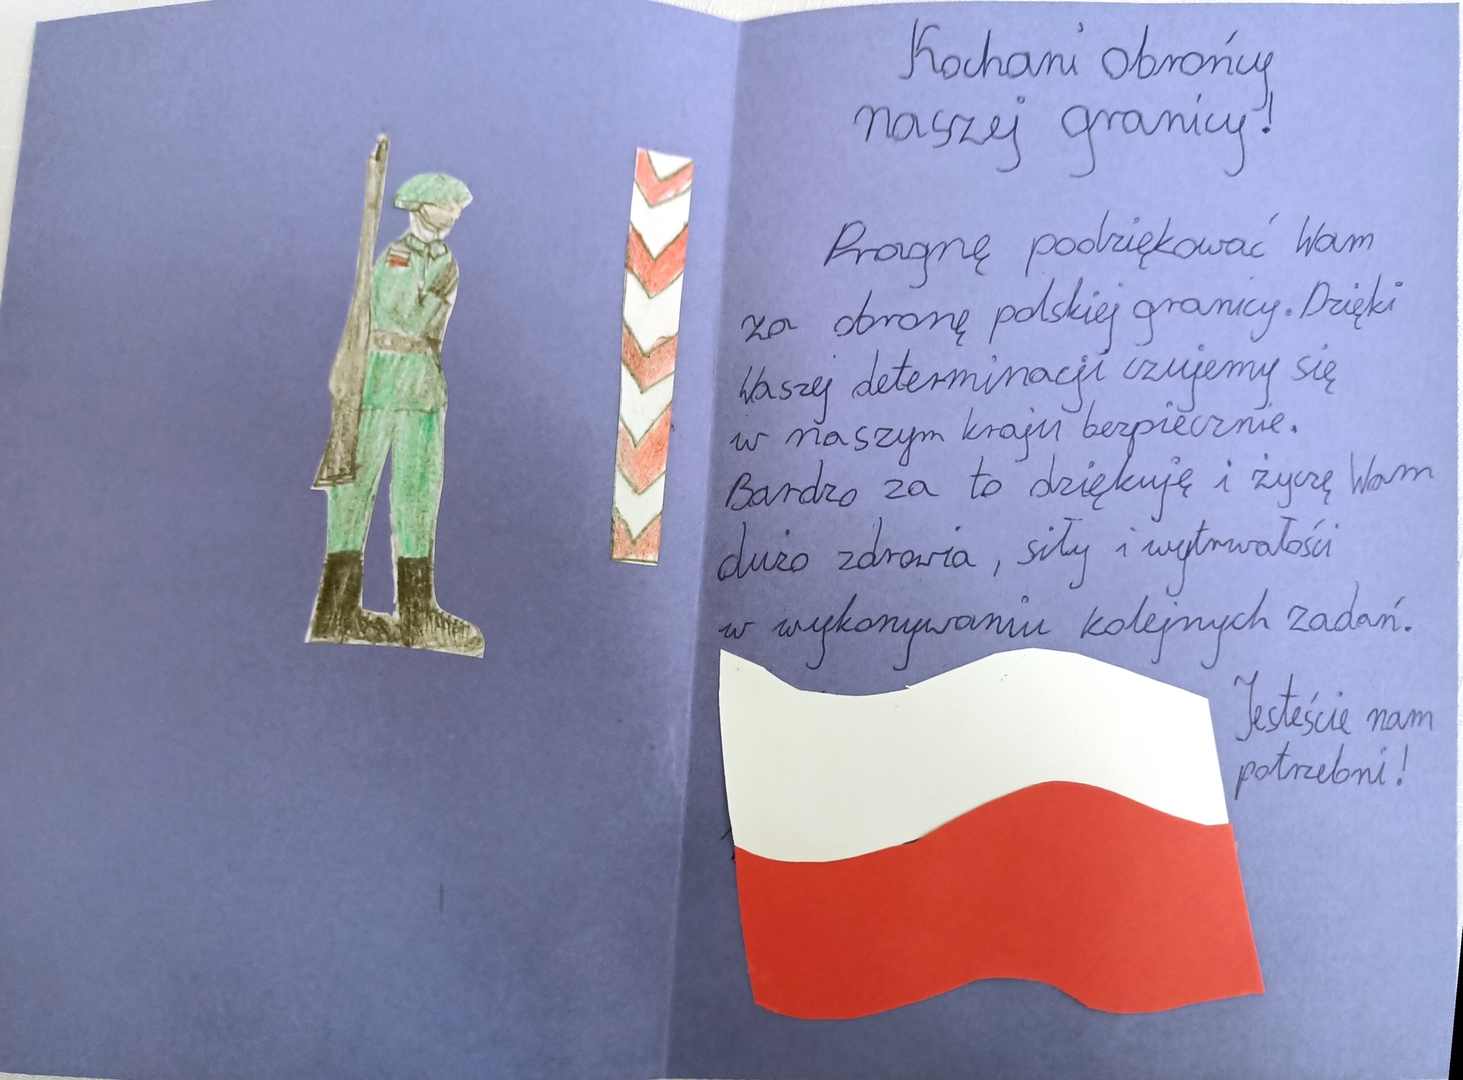 Kochani obrońcy
naszej granicy!
Pragnę podziękować Wam
za obronę polskiej granicy. Dzięki
Waszej determinacji czujemy się
w naszym kraju bezpiecznie.
Bardzo za to dziękuję i życzę Wam
dużo zdrowia, siły i wytrwałości
w wykonywaniu kolejnych zadań.
Jesteście nam
potrzebni!